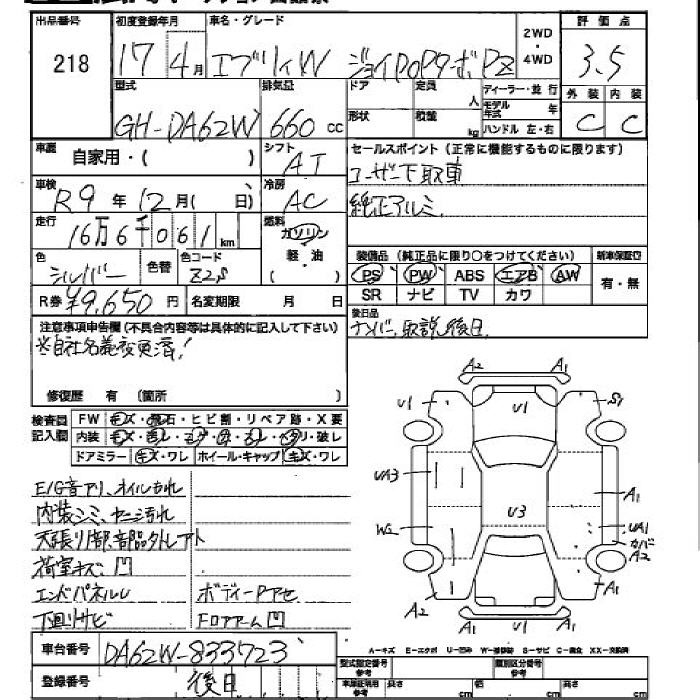 出品番号 初度登録年月 車名・グレード 2WD・4WD 評価点
218 17 年 4月 エブリィW ジョイPOPターボPZ 3.5
型式 排気量 ドア 定員 人 ディーラー・並行 外装 内装
GH-DA62W 660 cc 形状 積載 kg モデル年式 年 ハンドル 左・右 C C
車歴 自家用・( ) シフト AT セールスポイント(正常に機能するものに限ります)
ユーザー下取車
車検 R9年12月( 日) 冷房 AC 純正アルミ
走行 16万6千061km 燃料 ガソリン 軽・油 ( )
装備品(純正品に限り○をつけてください) 新車保証書
色 シルバー 色替 色コード Z2S PS PW ABS エアB AW 有・無
SR ナビ TV カワ
R券 ¥9,650円 名変期限 月 日 後日品
ナンバー、取説後日
注意事項申告欄(不具合内容等は具体的に記入して下さい)
※自社名義変更済!
修復歴 有 (箇所 )
検査員記入欄 FW キズ・飛石・ヒビ割・リペア跡・X要
内装 ・破レ
ドアミラー キズ・ワレ ホイール・キャップ キズ・ワレ
E/G音アリ、オイルもれ
内装シミ、ヤニ汚れ
天張り1部、部品外レアト
荷室キズ、凹
エンドパネルU ボディーPアセ
下回りサビ Fロアアーム凹
車台番号 DA62W-833723
登録番号 後日
A2 A1
U1 U1 S1
UA3 A1
U3
W2 UA1
カバーA2
A2 A1
A1 U1
A-キズ E-エクボ U-凹み W-補修跡 S-サビ C-腐食 XX-交換済
型式指定番号 参考 類別区分番号 参考
車体証明用 参考 長さ cm 幅 cm 高さ cm